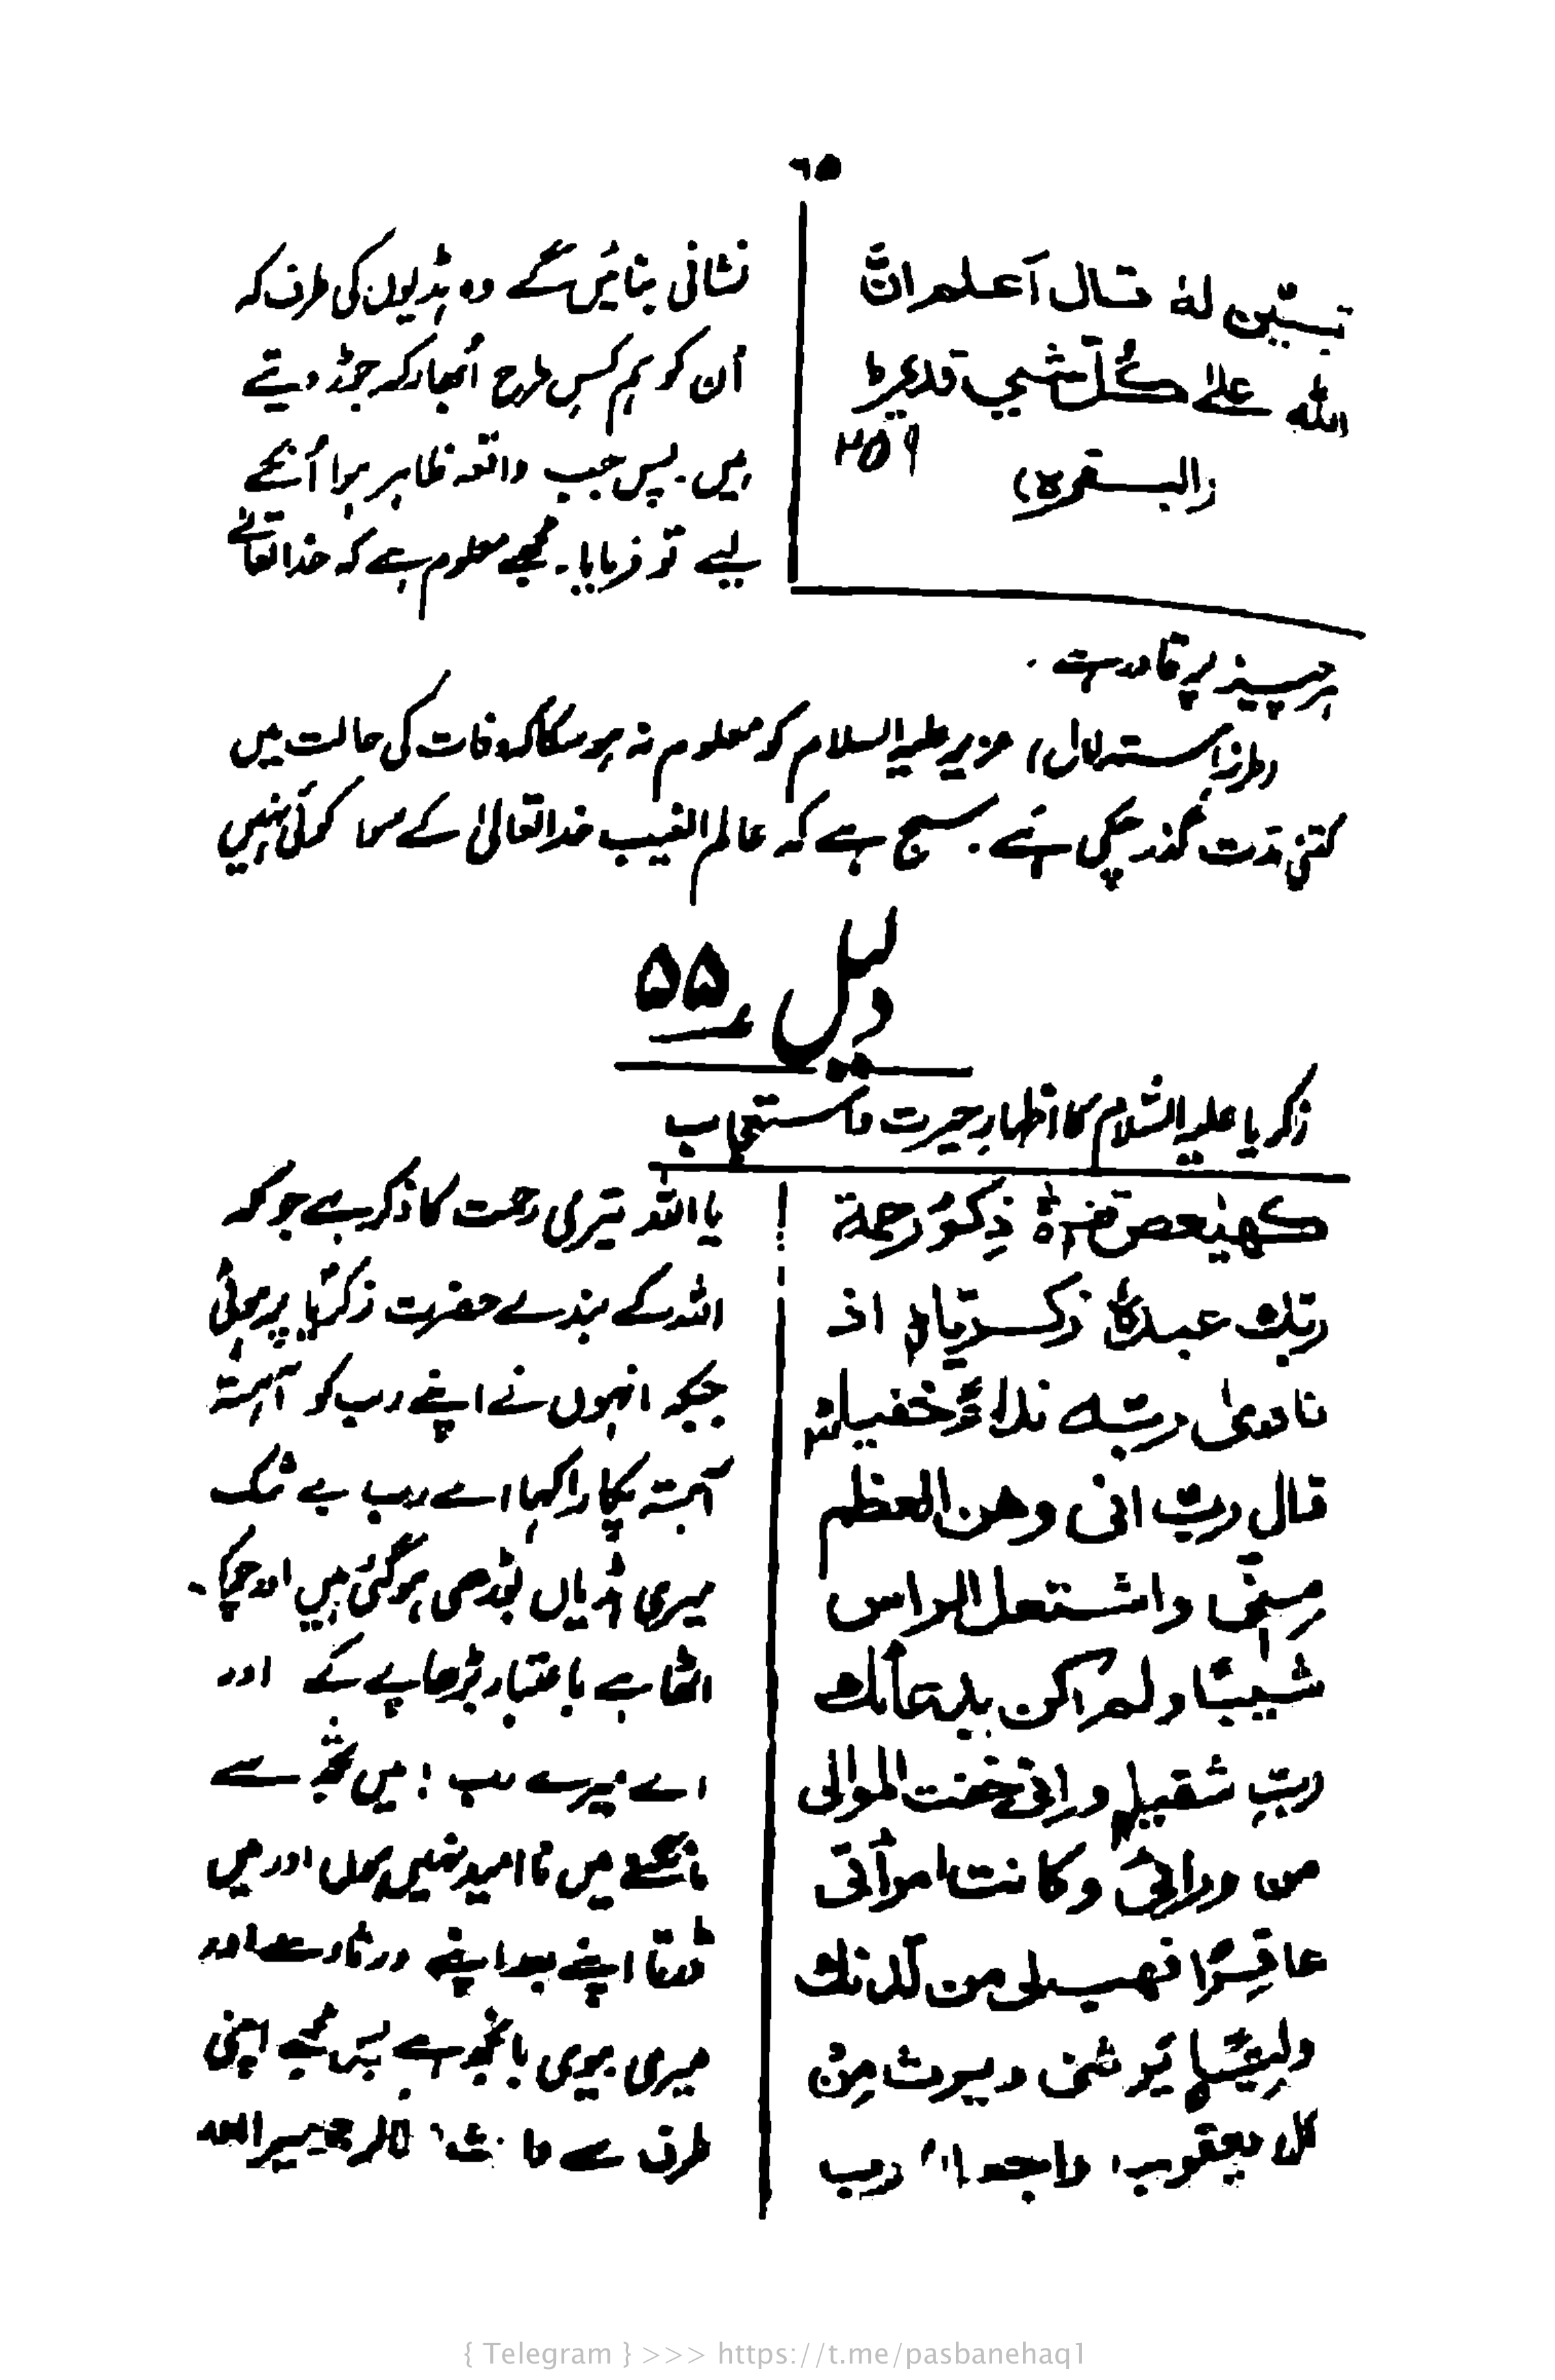 ٦٥
تبیّن لهٗ قال اَعلم انّ
اللّٰه علیٰ کُلّ شیٍ قدیرٌ
(البقرۃ) ۲۵۹
نشانی بنائیں گے وہ ہڈیوں کی طرف کہ
اُن کو ہم کس طرح اُبھار کر جوڑ دیتے
ہیں۔ پس جب واقعہ ظاہر ہوا اُنکے
لیے تو فرمایا۔ مجھے معلوم ہے کہ خدا تعالےٰ
ہر چیز پر قادر ہے۔
(طرز استدلال) عزیر علیہ السلام کو معلوم نہ ہو سکا کہ وفات کی حالت میں
کتنی مدّت گذر چکی ہے۔ سچ ہے کہ عالم الغیب خدا تعالیٰ کے سوا کوئی نہیں
دلیل نمبر ۵۵
زکریا علیہ السّلام کا اظہارِ حیرت و استعجاب
کھیٰعص ذِکرُ رحمة
ربّك عبدہٗ زکریّا اذ
نادیٰ ربّہ نداءً خفیا
قال ربّ انی وھن العظم
مِنّی واشتعل الراس
شیبًا ولم اکن بدعائك
ربّ شقیا وانی خفت الموالی
من ورائی وکانت امرأتی
عاقِرًا فھب لی من لدنك
ولیّا یرثنی ویرث مِنْ
اٰل یعقوب واجعلہ رب
یا اللہ تیری رحمت کا ذکر ہے جو کہ
اللہ کے بندے حضرت زکریّا پر ہوئی
جبکہ انہوں نے اپنے رب کو آہستہ
آہستہ پکارا کہا اے رب بے شک
میری ہڈیاں بوڑھی ہوگئی ہیں اور چمکا۔
اٹھا ہے باعتبار بڑھاپے کے اور
اے میرے رب! میں تجھ سے
مانگنے میں نا امید نہیں ہوا اور میں
ڈرتا اپنے بعد اپنے ورثاء سے اور
میری بیوی بانجھ ہے پس مجھے اپنی
طرف سے
{ Telegram } >>> https://t.me/pasbanehaq1